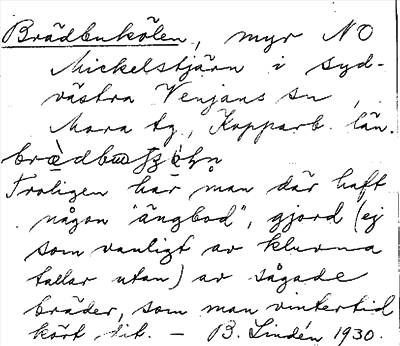 Brädbukölen, myr NO
Mickelstjärn i syd-
västra Venjans sn,
Mora tg., Kopparb. län.
Troligen har man där haft
någon "ängbod", gjord (ej
som vanligt av kluvna
tallar utan) av sågade
bräder, som man vintertid
kört dit. — B. Lindén 1930.